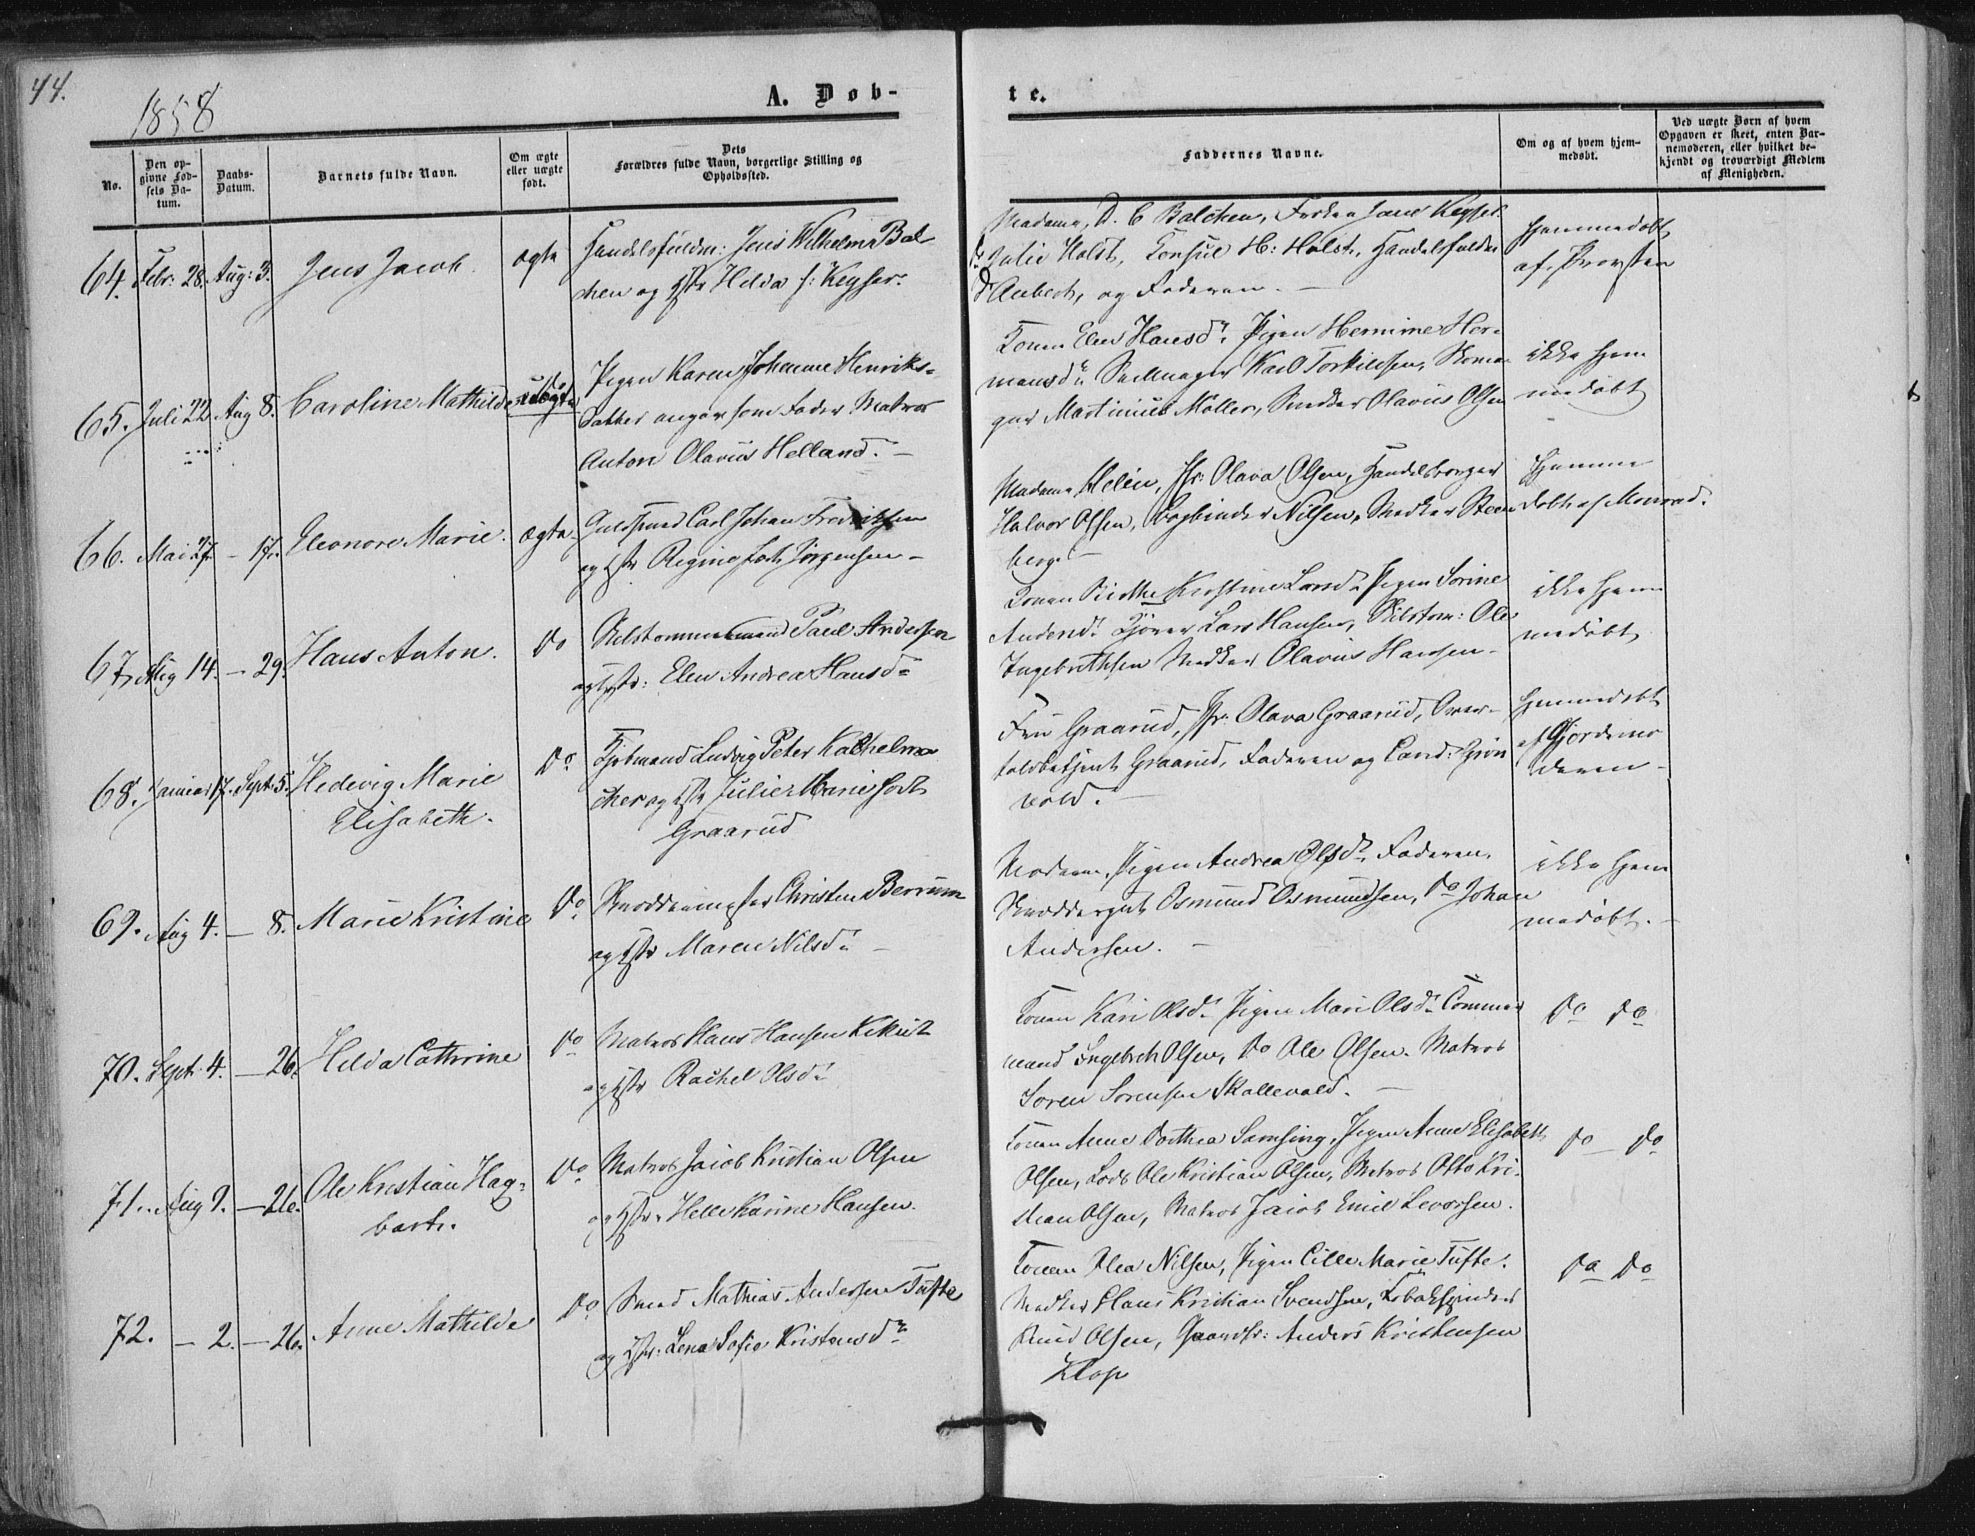 44.
1858
A. Døb-
te.
No.
Den op-
givne Fød-
sels Da-
tum.
Daabs-
Datum.
Barnets fulde Navn.
Om ægte
eller uægte
født.
Dets
Forældres fulde Navn, borgerlige Stilling og
Opholdssted.
Faddernes Navne.
Om og af hvem hjem-
medøbt.
Ved uægte Børn af hvem
Opgaven er skeet, enten Bar-
nemoderen, eller hvilket be-
kjendt og troværdigt Medlem
af Menigheden.
64. Febr: 28. Aug: 3. Jens Jacob. ægte
Handelsfuldm: Jens Wilhelm Bal
chen og Hstr Helda f: Keyser.
Madame D. C Balchen, Frøken Jane Keyser
Julie Holst, Consul H: Holst, Handelsfuldm
Aubert, og Faderen. –
Hjemmedøbt
af Provsten
65. Juli 22 Aug 8. Caroline Mathilde uægte
Pigen Karen Johanne Henriks-
datter angav som Fader Matros
Anton Olavus Helland. –
Konen Elen Hansdr. Pigen Hermine Her-
mansdr. Seilmager Karl Torkildsen, Skoma-
ger Martinius Møller, Snedker Olavus Olsen
ikke hjem
medøbt
66. Mai 27. – 17. Eleonore Marie. ægte
Guldsmed Carl Johan Fredriksen
og Hstr Regine født Jørgensen –
Madame Helén, Jfr: Olava Olsen, Handelsborger
Halvor Olsen, Bogbinder Nilsen, Snedker Steen
berg. –
Hjemme
døbt af Monrad.
67. Aug 14. – 29. Hans Anton. Do
Stolstommermand Paul Andersen
og Hstr: Elen Andrea Hansdr
Konen Birthe Kirstine Larsdr Pigen Sorine
Andersdr. Lars Hansen, Ole
Ingebrethsen Snedker Olavus Hansen –
ikke hjem
medøbt
68. Januar 17. Sept: 5. Hedevig Marie
Elisabeth. Do
Kjøbmand Ludvig Peter
og Hstr Julie Marie født
Graarud
Fru Graarud, Jfr: Olava Graarud, Over-
toldbetjent Graarud, Faderen og Cand: Grøn
vold. –
Hjemmedøbt
af Gjordemo
deren –
69. Aug 4. – 8. Marie Kristine Do
Skreddermester Christen Berrum
og Hstr Maren Nilsdr –
Moderen, Pigen Andrea Olsdr, Faderen,
Skreddersvend Osmund Osmundsen, Do Johan
Andersen. –
ikke hjem
medøbt. –
70. Sept: 4. – 26. Helda Cathrine Do
Matros Hans Hansen Kekut
og Hstr Rachel Olsdr
Konen Kari Olsdr Pigen Mari Olsdr Tømmer
mand Ingebreth Olsen, Do Ole Olsen. Matros
Søren Sørensen Skallevold. –
Do Do
71. Aug 9. – 26. Ole Kristian Hag-
barth. Do
Matros Jacob Kristian Olsen
og Hstr. Helle Karine Hansen.
Konen Anne Dorthea Samsing, Pigen Anne Elisabeth
Olsen, Lods Ole Kristian Olsen, Matros Otto Kri-
stian Olsen, Matros Jacob Emil Levorsen.
Do – Do
72. – 2. – 26. Anne Mathilde Do
Smed Mathias Andersen Tufte
og Hstr: Lena Sofie Kristensdr
Konen Olea Nilsen, Pigen Cille Marie Tufte.
Snedker Hans Kristian Svendsen, Tobakspinder
Knud Olsen, Gaardbr: Anders Kristensen
Klop
Do Do